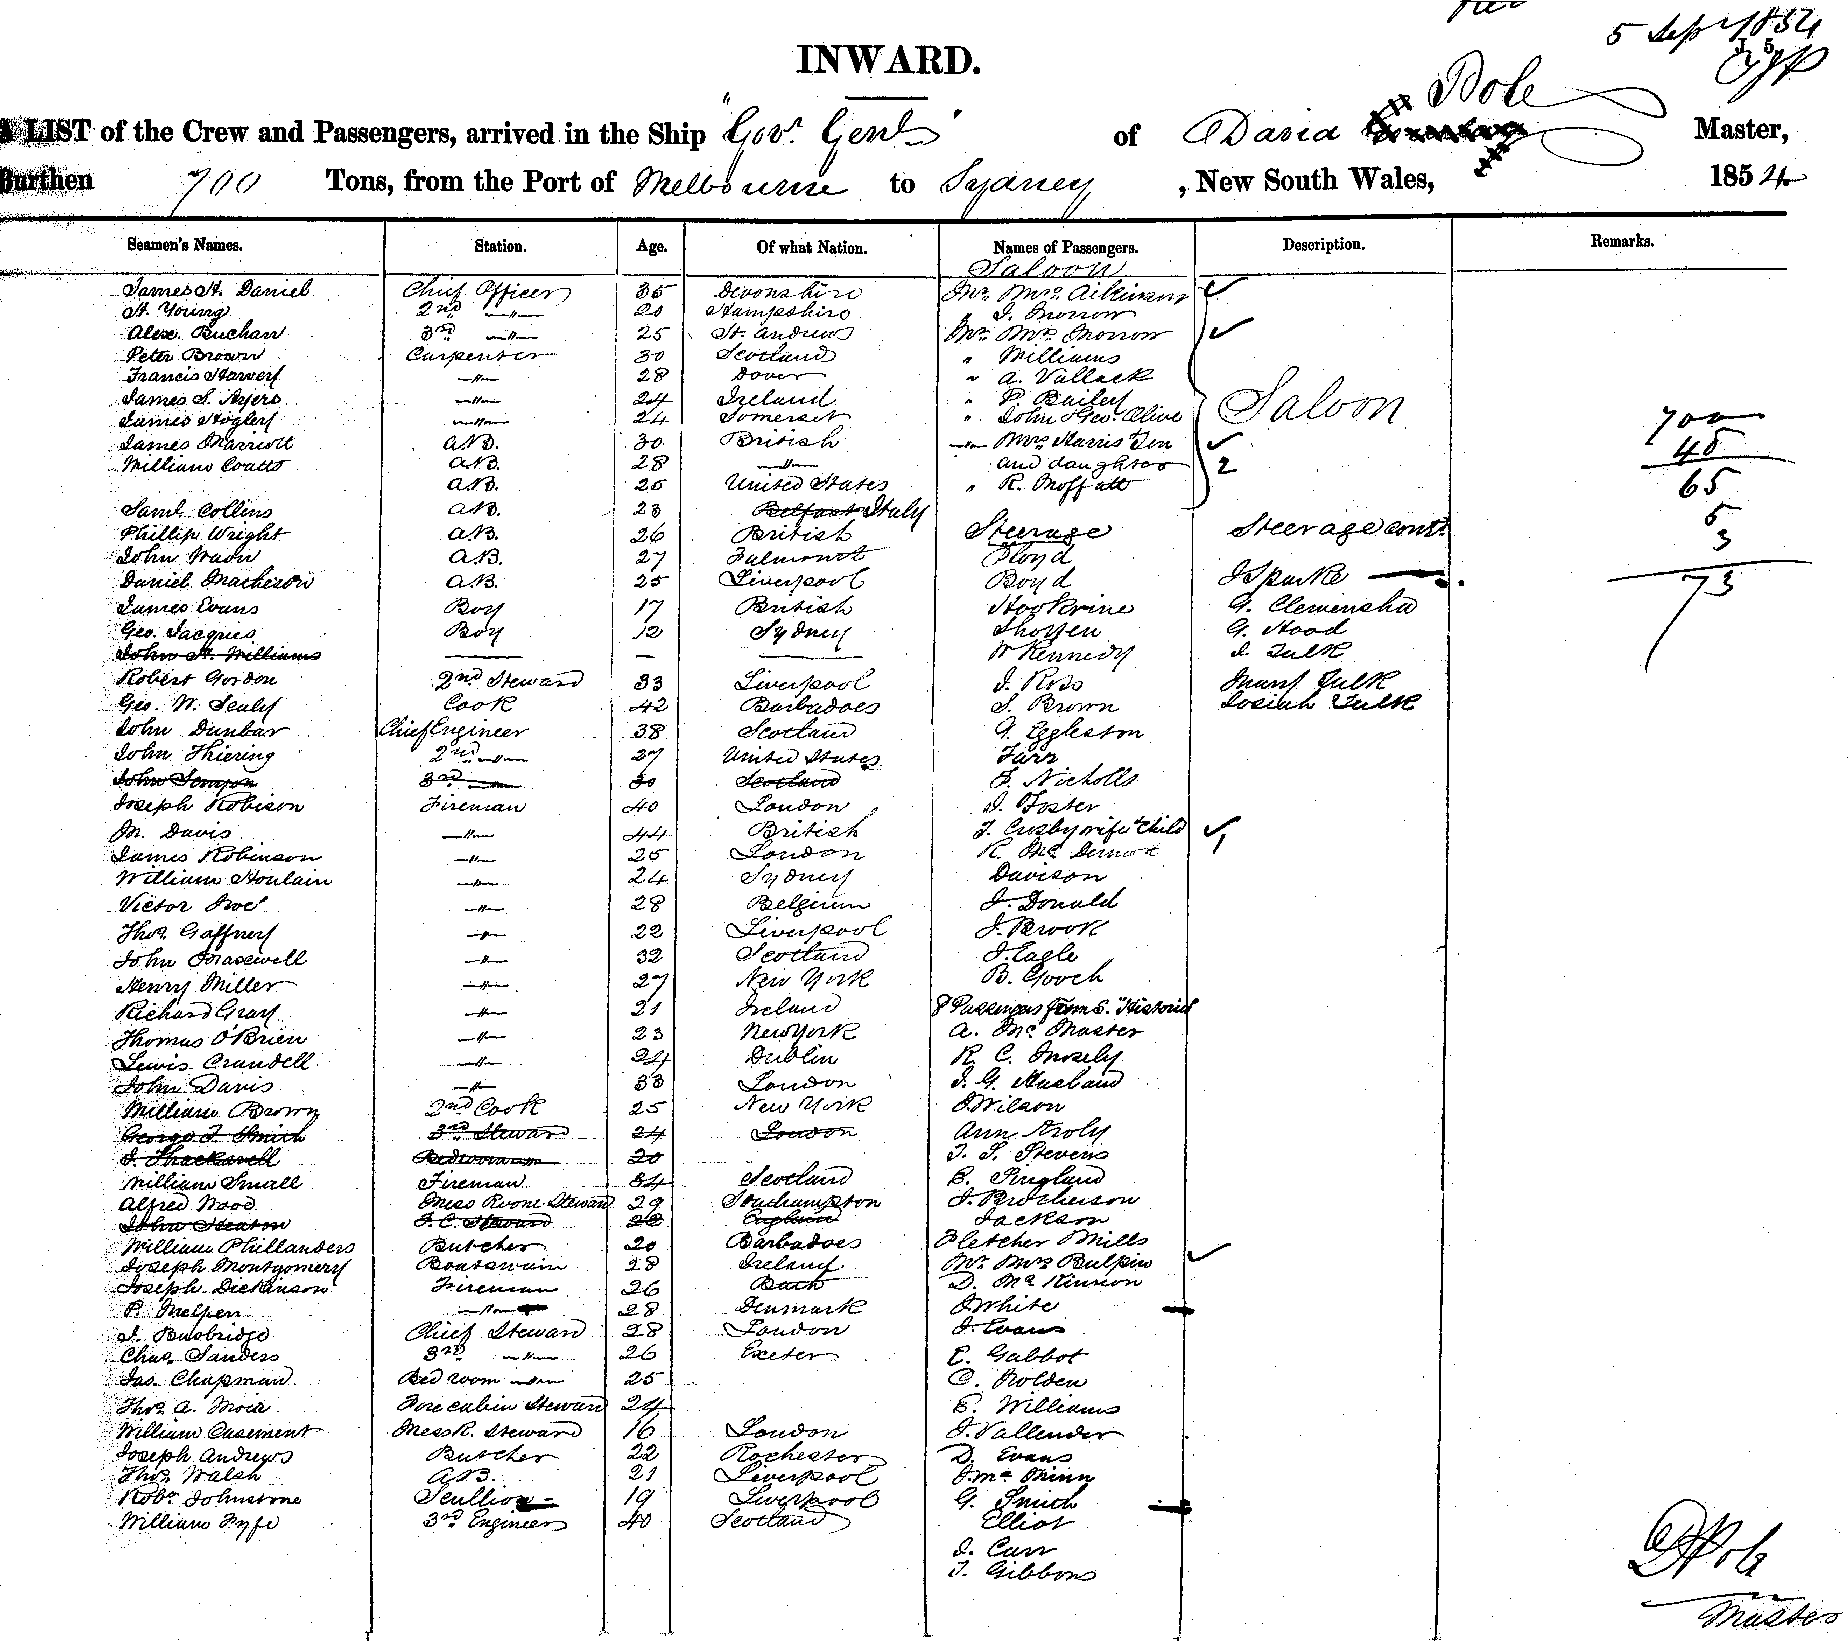 5 Sept 1854
INWARD.
Pole
A LIST of the Crew and Passengers, arrived in the Ship "Govr. Genl" of David Master,
Burthen 700 Tons, from the Port of Melbourne to Sydney, New South Wales, 1854
Seamen's Names. Station. Age. Of what Nation. Names of Passengers. Description. Remarks.
Saloon
James H. Daniel Chief Officer 35 Devonshire Mr. Mrs. Aitkinson
H. Young 2nd " 20 Hampshire " J. Morrow
Alex. Buchan 3rd " 25 St. Andrews Mr. Mrs. Morrow
Peter Brown Carpenter 30 Scotland " Williams
Francis Harvey " 28 Dover " A. Vallack
James S. Ayers " 24 Ireland " P. Bailey Saloon
James Hogley " 24 Somerset " John Geo. Clive 700
James Marriott A.B. 30 British " Mrs. Harris Sen 45
William Coatts A.B. 28 " and daughter 2 65
A.B. 25 United States " R. Moffatt
Saml. Collins A.B. 23 Belfast Italy 5
Phillip Wright A.B. 26 British Steerage Steerage cont. 3
John Waon A.B. 27 Falmouth Floyd
Daniel Matheson A.B. 25 Liverpool Boyd J Sparke 73
James Evans Boy 17 British Hookrine G. Clemensha
Geo. Jacques Boy 12 Sydney Thorsen G. Hood
John H. Williams — — — W Kennedy J. Tulk
Robert Gordon 2nd Steward 33 Liverpool J. Ross Mary Tulk
Geo. W. Sealy Cook 42 Barbadoes S. Brown Josiah Tulk
John Dunbar Chief Engineer 38 Scotland G. Eggleston
John Thiering 2nd " 27 United States Farr
John 3rd " 30 Scotland E. Nicholls
Joseph Robison Fireman 40 London J. Foster
M. Davis " 44 British T. Cusby wife & Child 1
James Robinson " 25 London R. Mc Dermot
William Houlain " 24 Sydney Davison
Victor " 28 Belgium J. Donald
Thos. Gaffney " 22 Liverpool J. Brook
John Maxwell " 32 Scotland J. Eagle
Henry Miller " 27 New York B. Gooch
Richard Gray " 21 Ireland 8 Passengers from S. "Historian
Thomas O'Brien " 23 New York A. Mc Master
Lewis Crandell " 24 Dublin R. C. Mosely
John Davis " 33 London J. G. Husband
William Brown 2nd Cook 25 New York J Wilson
George J Smith 3rd Steward 24 London Ann Aroly
J. Thackwell Bedroom " 20 T. S. Stevens
William Small Fireman 34 Scotland E. Singland
Alfred Wood Mess Room Steward 29 Southampton J. Brotherson
John Heaton F. C. Steward 22 England Jackson
William Phillanders Butcher 20 Barbadoes Fletcher Mills
Joseph Montgomery Boatswain 28 Ireland Mr. Mrs. Bulpin
Joseph Dickinson Fireman 26 Bath D. Mc Kinnon
P. Melpen " 28 Denmark J White
J. Busbridge Chief Steward 28 London J. Evans
Chas. Sanders 3rd " 26 Exeter E. Gabbot
Jas. Chapman Bed room " 25 C. Holden
Thos. A. Moir Fore cabin Steward 24 E. Williams
William Casement Mess R. Steward 16 London J. Vallender
Joseph Andrews Butcher 22 Rochester D. Evans
Thos. Walsh A.B. 21 Liverpool J. Mc Minn
Robt. Johnstone Scullion 19 Liverpool G. Smith
William Fyfe 3rd Engineer 40 Scotland Elliot
J. Carr
T. Gibbons
D Pole
Master